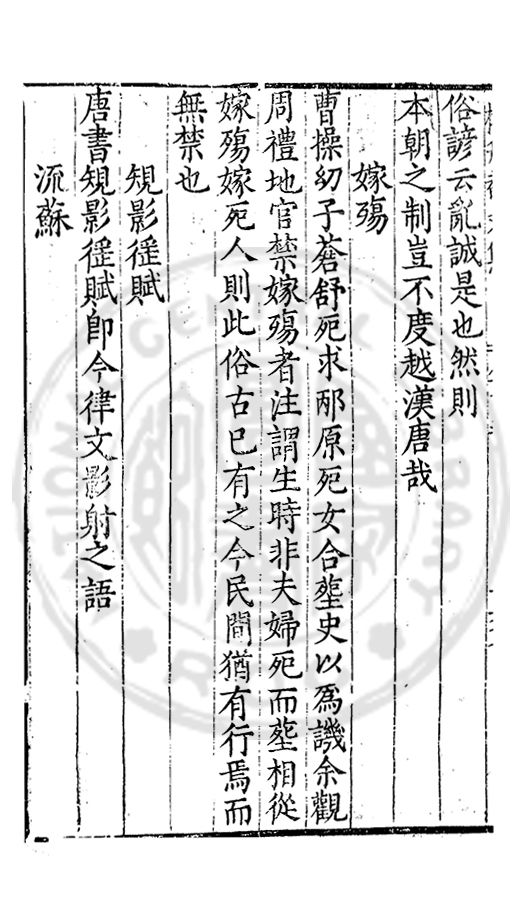 俗諺云亂誠是也然則
本朝之制豈不度越漢唐哉
嫁殤
曹操幼子蒼舒死求邴原死女合塟史以爲譏余觀
周禮地官禁嫁殤者注謂生時非夫婦死而塟相從
嫁殤嫁死人則此俗古已有之今民間猶有行焉而
無禁也
規影徭賦
唐書規影徭賦卽今律文影射之語
流蘇